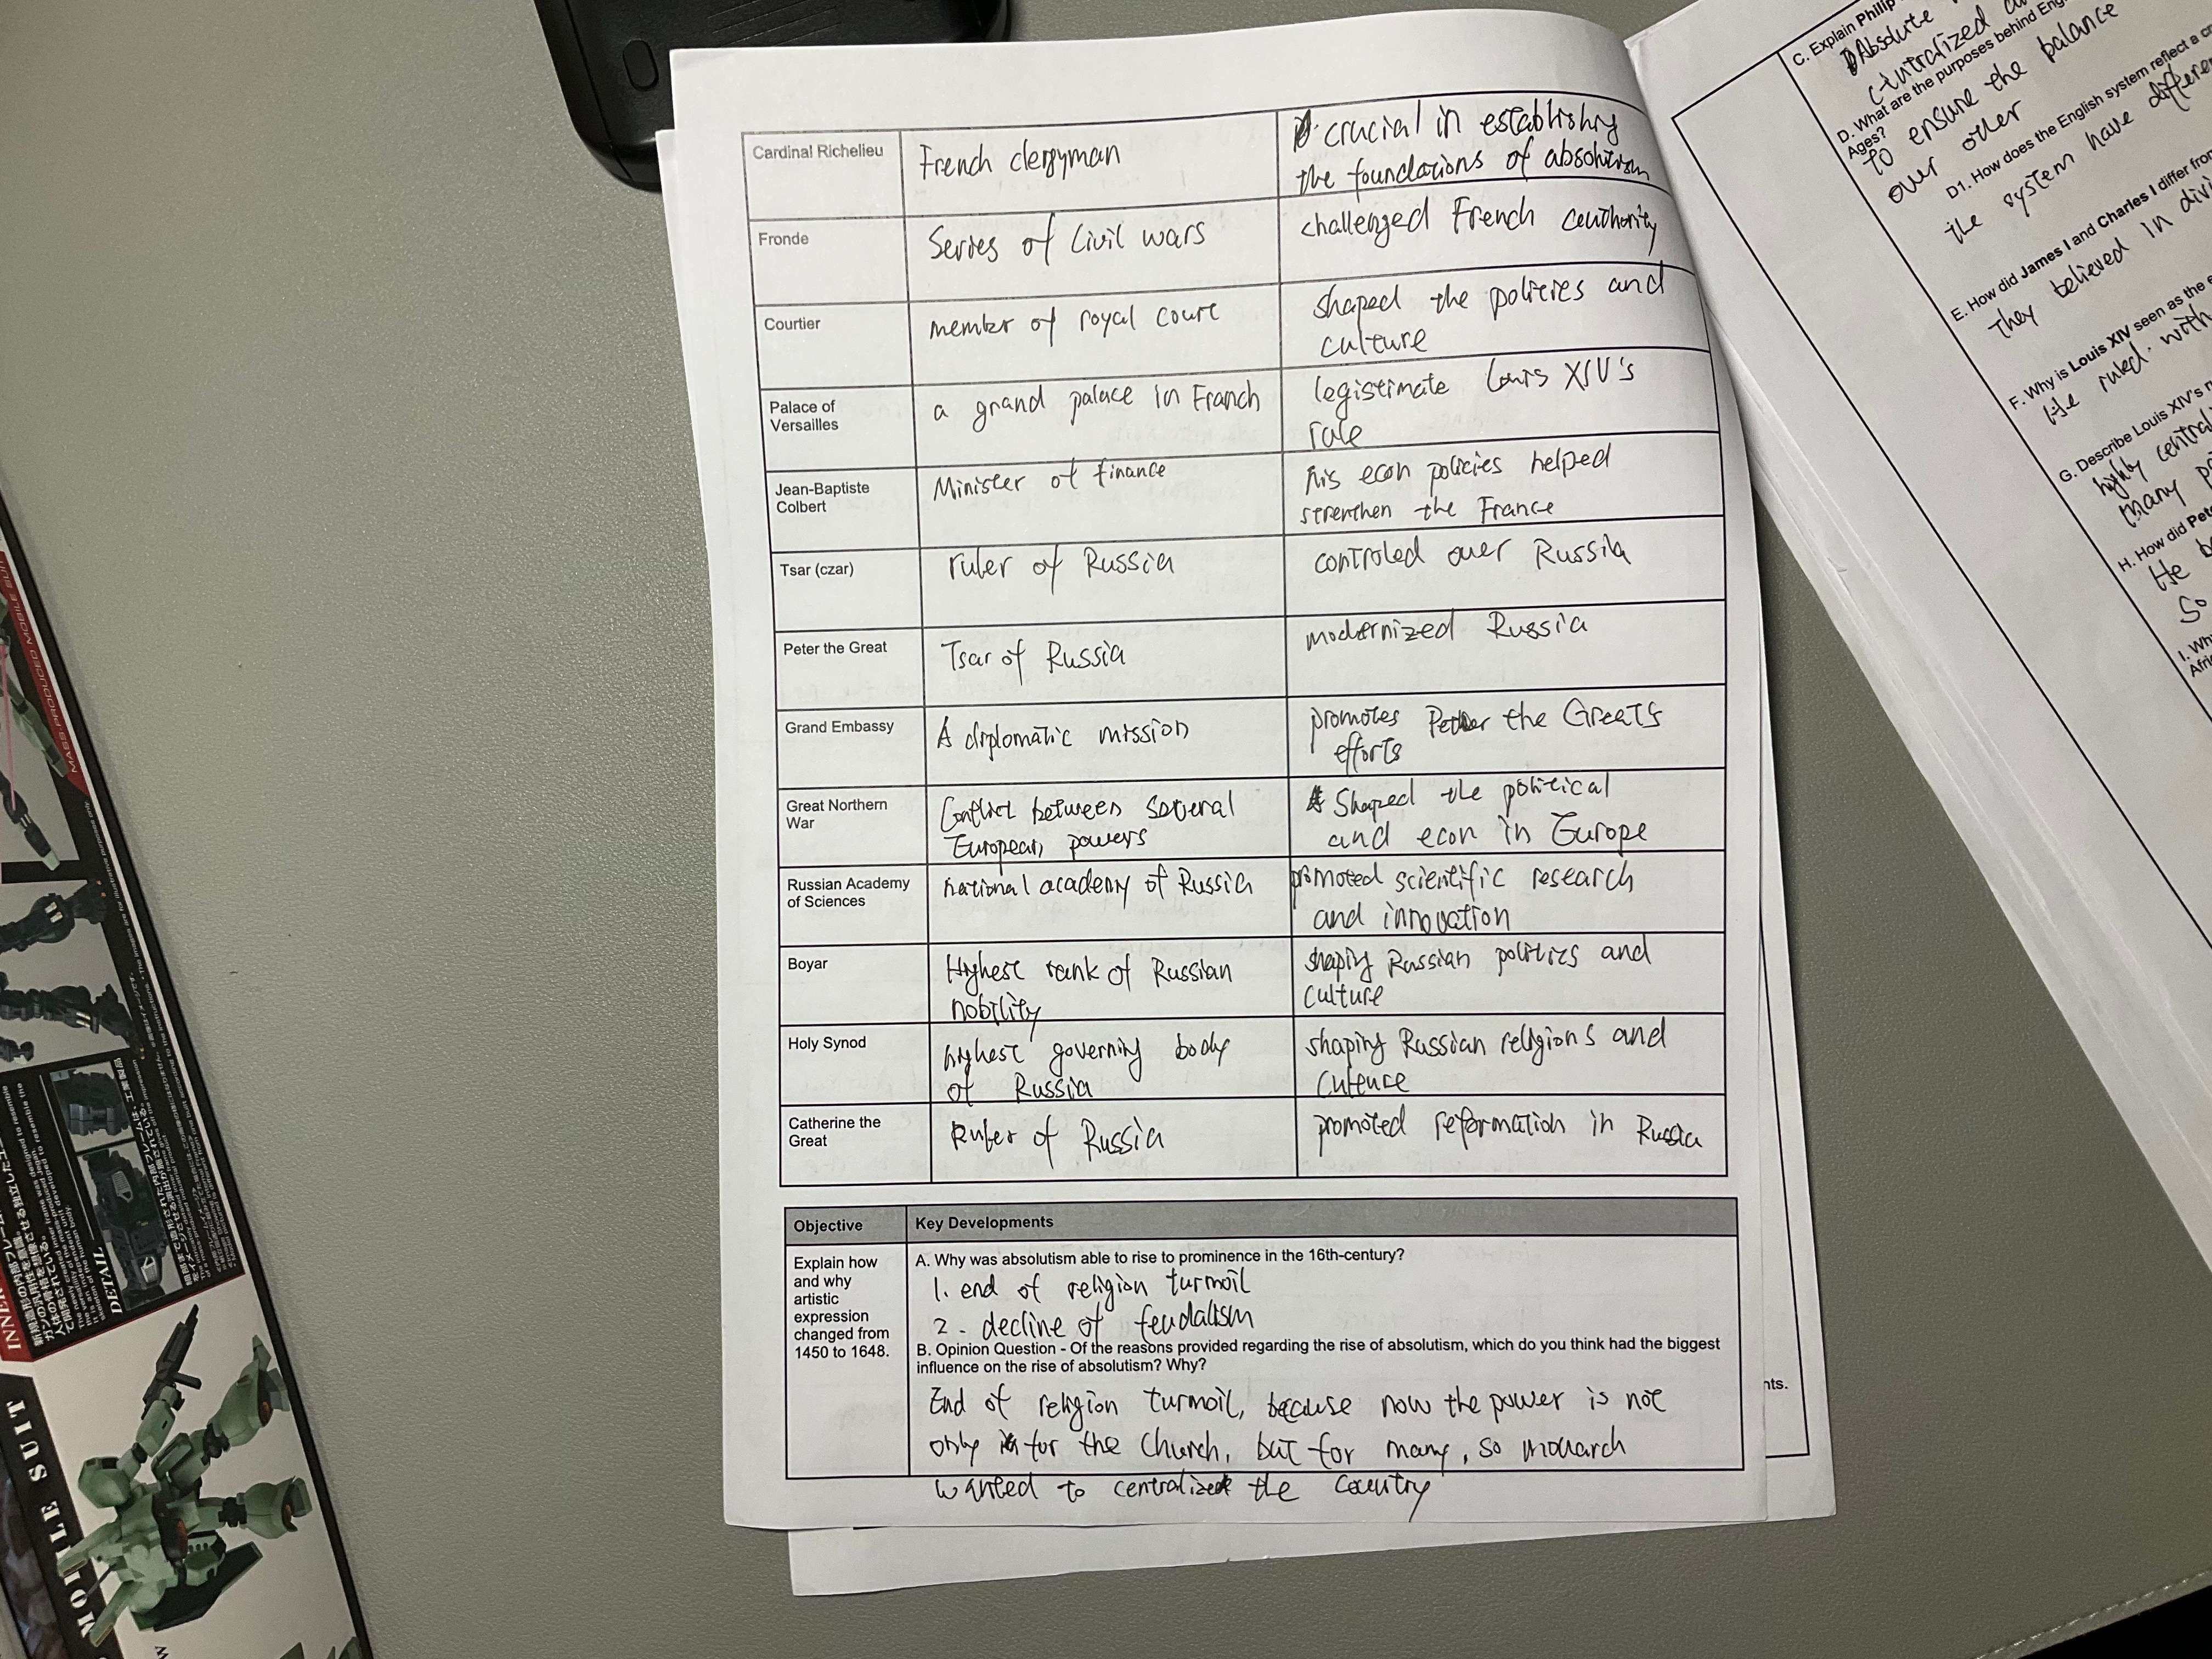 Cardinal Richelieu
French clergyman
crucial in establishing
the foundations of absolutism
Fronde
Series of Civil wars
challenged French authority
Courtier
member of royal court
shaped the policies and
culture
Palace of
Versailles
a grand palace in Franch
legistimate Louis XIV's
rule
Jean-Baptiste
Colbert
Minister of finance
his econ policies helped
strenthen the France
Tsar (czar)
ruler of Russia
controled over Russia
Peter the Great
Tsar of Russia
modernized Russia
Grand Embassy
A diplomatic mission
promotes Peter the Great's
efforts
Great Northern
War
Conflict between several
European powers
Shaped the political
and econ in Europe
Russian Academy
of Sciences
national academy of Russia
promoted scientific research
and innovation
Boyar
Highest rank of Russian
nobility
shaping Russian politics and
culture
Holy Synod
highest governing body
of Russia
shaping Russian religions and
culture
Catherine the
Great
Ruler of Russia
promoted reformation in Russia
Objective
Key Developments
Explain how
and why
artistic
expression
changed from
1450 to 1648.
A. Why was absolutism able to rise to prominence in the 16th-century?
1. end of religion turmoil
2. decline of feudalism
B. Opinion Question - Of the reasons provided regarding the rise of absolutism, which do you think had the biggest
influence on the rise of absolutism? Why?
End of religion turmoil, because now the power is not
only for the Church, but for many, so monarch
wanted to centralize the country
nts.
C. Explain Philip
Absolute
centralized
D. What are the purposes behind Eng
Ages?
To ensure the balance
over other
D1. How does the English system reflect a
the system have different
E. How did James I and Charles I differ from
they believed in
F. Why is Louis XIV seen as the
He ruled with
G. Describe Louis XIV's
highly
many
H. How did Pete
He
So
I. Wh
Afri
MASS-PRODUCED MOBILE SUIT
DETAIL
INNER
MOBILE SUIT